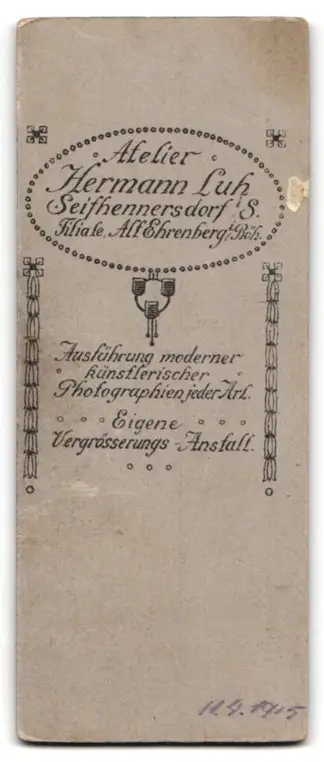 Atelier
Hermann Luh
Seifhennersdorf i. S.
Filiale. Alt Ehrenberg i. Böh.
Ausführung moderner
künstlerischer
Photographien jeder Art.
Eigene
Vergrösserungs-Anstalt.